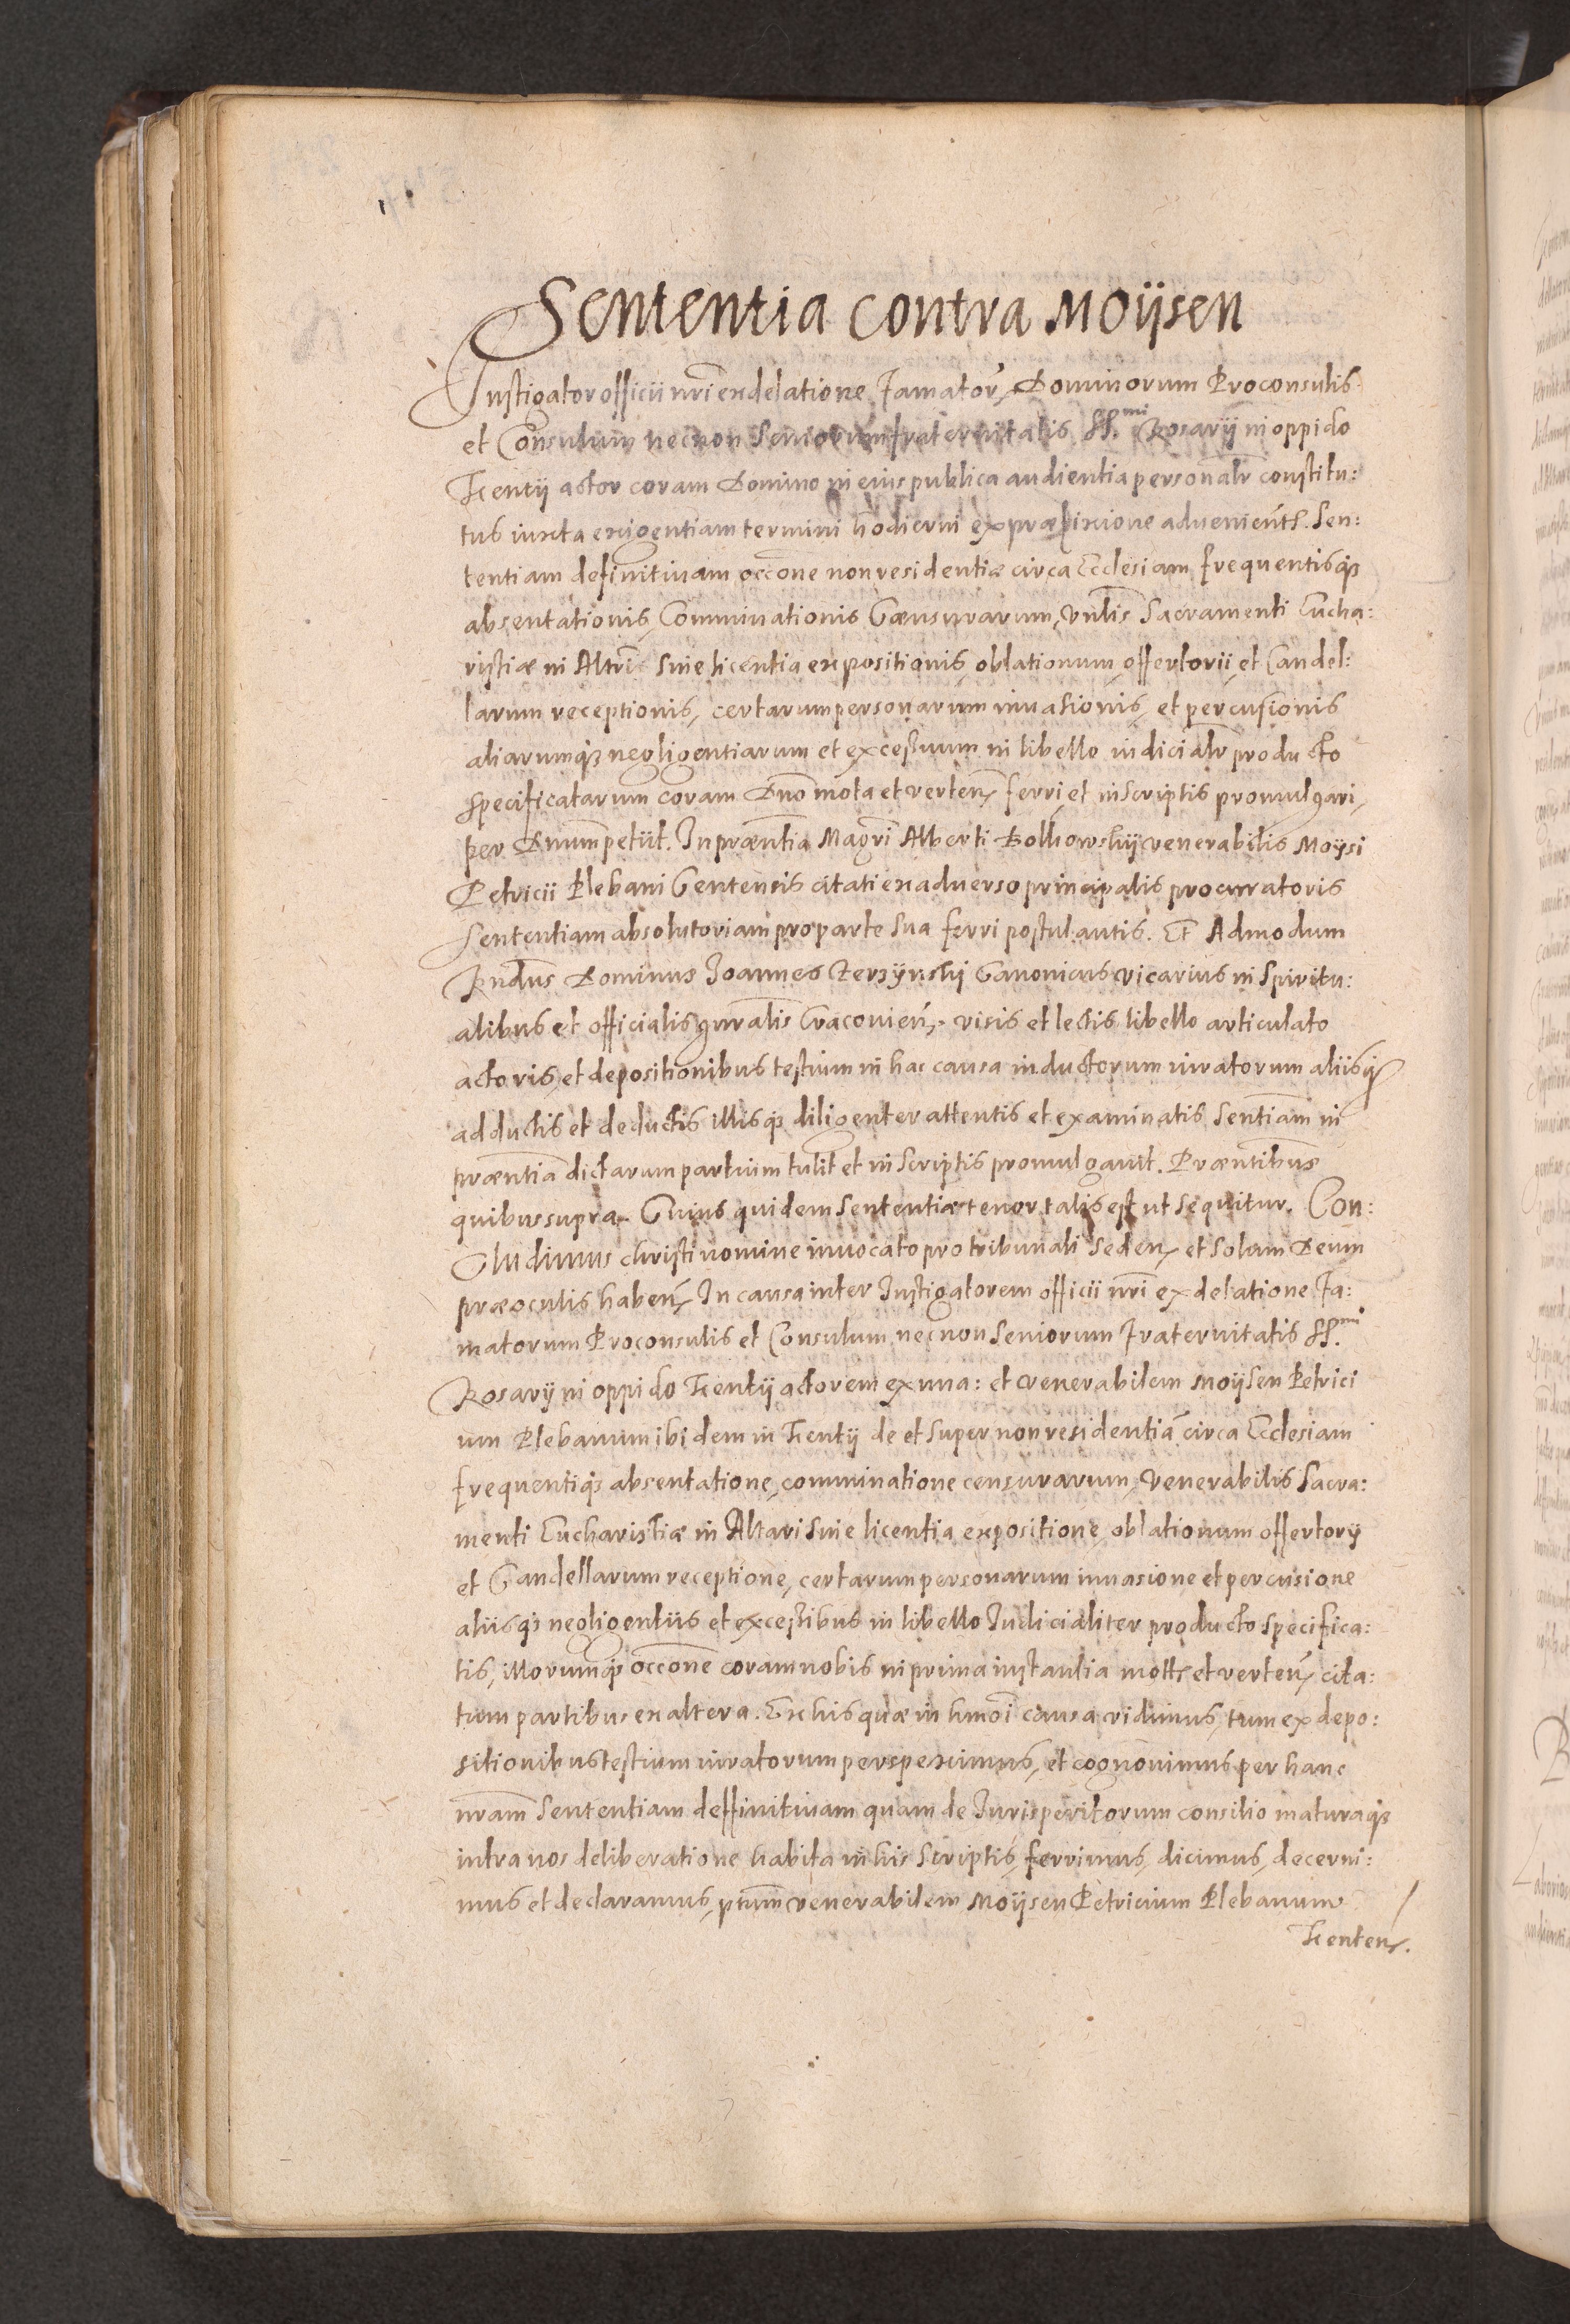 Sententia contra Moÿsen
Instigator officii nr̃i ex delatione Famator̃ Dominorum Proconsulis
et Consulum necnon Seniorum fraternitatis SS.mi Rosarÿ in oppido
Kentÿ actor coram Domino in eius publica audientia personalr̃ constitu:
tus iuxta exigentiam termini hodierni ex præfixione advenient. Sen:
tentiam definitivam occ̃one non residentiæ circa Ecclesiam frequentisq;
absentationis, Comminationis Censurarum, vn̄lis Sacramenti Eucha:
ristiæ in Altri sine licentia expositionis, oblationum, offertorii, et Candel:
larum receptionis, certarum personarum invasionis, et percusionis
aliarumq; negligentiarum et excessuum in libello iudicialr̃ producto
specificatarum coram Dn̄o mota et verten̄ ferri, et in scriptis promulgari,
per Dnum̄ petiit. In præn̄tia Magr̄i Alberti Bolhowskÿ venerabilis Moÿsi
Petricii Plebani Centensis citati ex adverso principalis procuratoris
Sententiam absolutoriam pro parte sua ferri postulantis. Et Admodum
Rnd̄us Dominus Joannes Jerzÿnski Canonicus vicarius in Spiritu:
alibus et officialis gnr̄alis Cracovien̄. visis et lectis libello articulato
actoris, et depositionibus testium in hac causa inductorum iuratorum aliisq;
adductis et deductis illisq; diligenter attentis et examinatis Senten̄tiam in
præn̄tia dictarum partium tulit et in scriptis promulgavit. Præn̄tibus
quibus supra. Cuius quidem sententiæ tenor talis est ut sequitur. Con:
Cludimus christi nomine invocato pro tribunali seden̄ et solum Deum
præ oculis haben̄ In causa inter Instigatorem officii nr̄i ex delatione Fa:
matorum Proconsulis et Consulum necnon Seniorum Fraternitatis SS.mi
Rosarÿ in oppido Kentÿ actorem ex una: et venerabilem Moÿsen Petrici
um Plebanum ibidem in Kentÿ de et super non residentia circa Ecclesiam
frequentiq; absentatione, comminatione censurarum, Venerabilis Sacra:
menti Eucharistiæ in Altari sine licentia expositione, oblationum offertorÿ
et Candellarum receptione, certarum personarum invasione et percusione
aliisq; negligentiis et excessibus in libello Iudicialiter producto specifica:
tis, illorumq; occ̄one coram nobis in prima instantia mott. et verten̄ cita:
tum partibus ex altera. Ex his quæ in hmōi causa vidimus, tum ex depo:
sitionibus testium iuratorum perspeximus, et cognovimus per hanc
nrām Sententiam deffinitivam quam de Iurisperitorum consilio maturaq;
intra nos deliberatione habita in his scriptis, ferrimus, dicimus, decerni:
mus et declaramus, ptum̄ venerabilem Moÿsen Petricium Plebanum
Kenten̄.